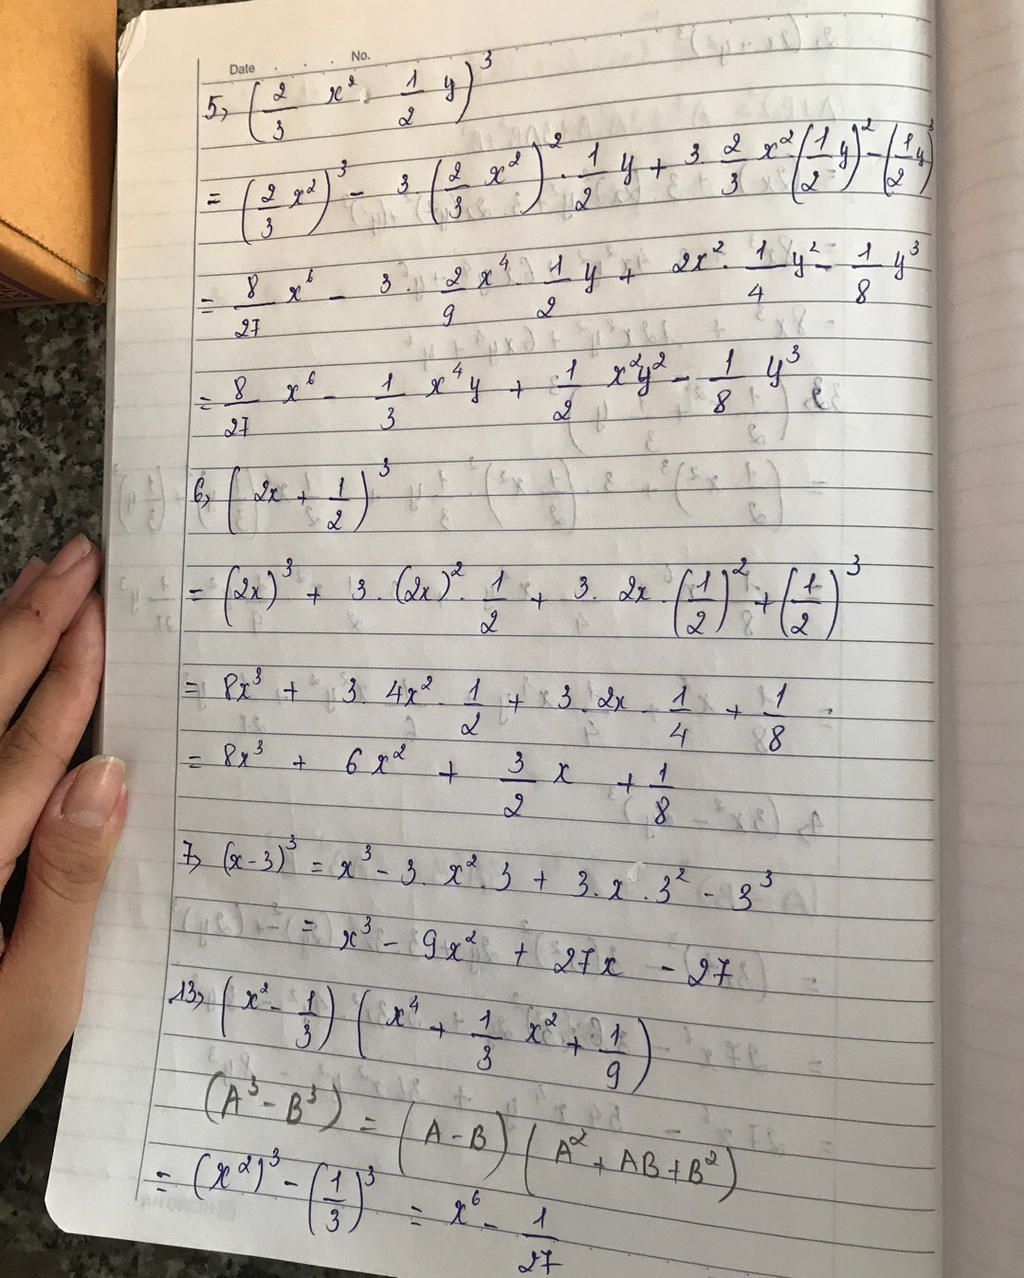 Date No.
5, (2/3 x² 1/2 y)³
= (2/3 x²)³ - 3. (2/3 x²)² . 1/2 y + 3. 2/3 x² (1/2 y)² - (1/2 y)³
= 8/27 x⁶ - 3. 2/9 x⁴ . 1/2 y + 2x² . 1/4 y² - 1/8 y³
= 8/27 x⁶ - 1/3 x⁴y + 1/2 x²y² - 1/8 y³
6, (2x + 1/2)³
= (2x)³ + 3. (2x)² . 1/2 + 3. 2x . (1/2)² + (1/2)³
= 8x³ + 3. 4x² . 1/2 + 3. 2x . 1/4 + 1/8
= 8x³ + 6x² + 3/2 x + 1/8
7, (x-3)³ = x³ - 3. x² . 3 + 3. x . 3² - 3³
= x³ - 9x² + 27x - 27
13, (x² - 1/3) (x⁴ + 1/3 x² + 1/9)
(A³ - B³) = (A - B) (A² + AB + B²)
= (x²)³ - (1/3)³ = x⁶ - 1/27